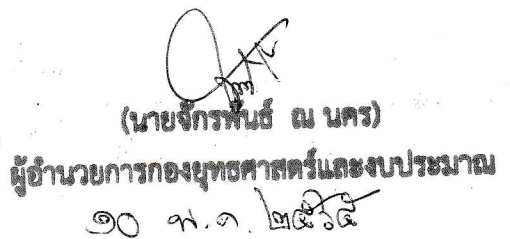 (นายจักรพันธ์ ณ นคร)
ผู้อำนวยการกองยุทธศาสตร์และงบประมาณ
๑๐ พ.ค. ๒๕๖๕